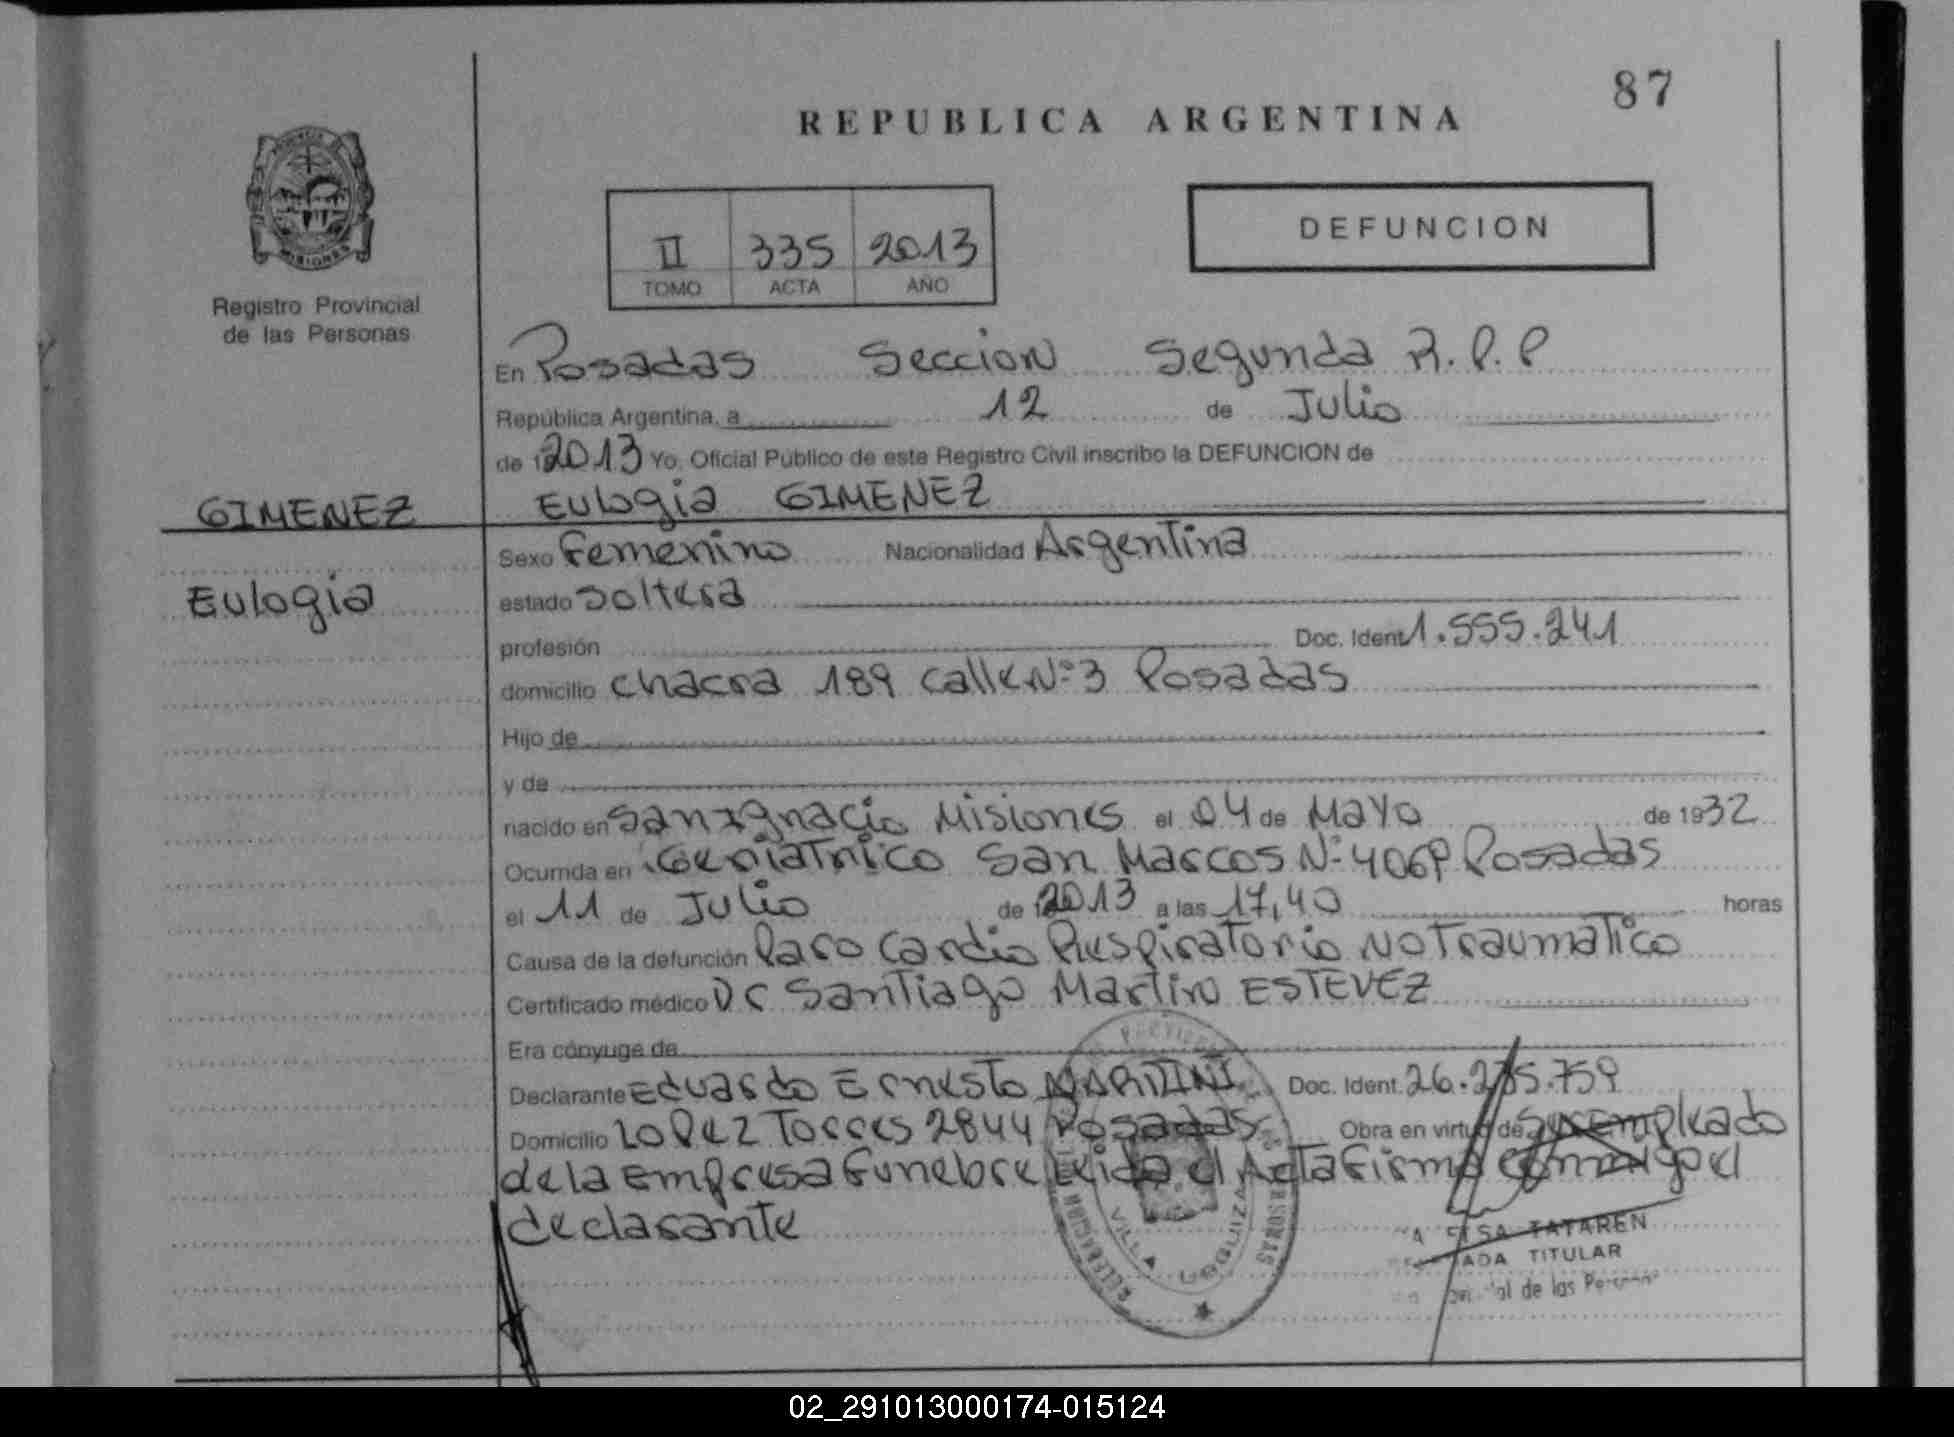 87
REPUBLICA ARGENTINA
DEFUNCION
II 335 2013
TOMO ACTA AÑO
MISIONES
Registro Provincial
de las Personas
En Posadas Seccion Segunda R.P.P
República Argentina, a 12 de Julio
de 2013 Yo, Oficial Público de este Registro Civil inscribo la DEFUNCION de
GIMENEZ Eulogia GIMENEZ
Sexo Femenino Nacionalidad Argentina
Eulogia estado Soltera
profesión Doc. Ident 1.555.241
domicilio Chacra 189 calle N:3 Posadas
Hijo de
y de
nacido en San Ignacio Misiones el 04 de Mayo de 1932
Ocurrida en Geriatrico San Marcos N: Posadas
el 11 de Julio de 2013 a las 17,40 horas
Causa de la defunción Paro Cardio Respiratorio No Traumatico
Certificado médico Dr Santiago Martin ESTEVEZ
Era cónyuge de
Declarante Eduardo Ernesto MARTINI Doc. Ident.
Domicilio Lopez Torres 2844 Posadas Obra en virtud de Ser Empleado
de la Empresa Funebre Leida el Acta Firma Conmigo el
declarante
VILLA
TATAREN
TITULAR
de las
02_291013000174-015124